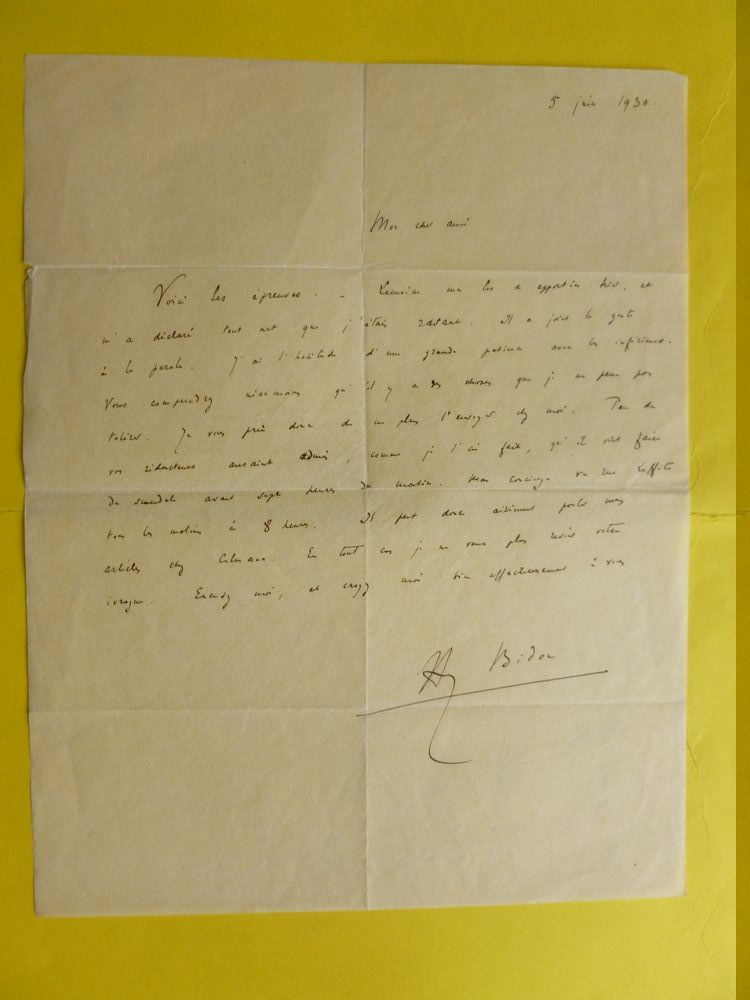 5 juin 1930.
Mon cher ami
Voici les épreuves. – Lemoine me les a apportées hier, et
m'a déclaré tout net que j'étais rasant. Il a joint le geste
à la parole. J'ai l'habitude d'une grande patience avec les inférieurs.
Vous comprendrez néanmoins qu'il y a des choses que je ne peux pas
tolérer. Je vous prie donc de ne plus l'envoyer chez moi. Peu de
vos rédacteurs auraient admis, comme je l'ai fait, qu'il vint faire
du
avant sept heures du matin. Mon concierge va rue Laffitte
tous les matins à 8 heures. Il peut donc aisément porter mes
articles chez
En tout cas je ne veux plus revoir votre
ivrogne. Excusez moi, et croyez moi bien affectueusement à vous
Hy Bidou